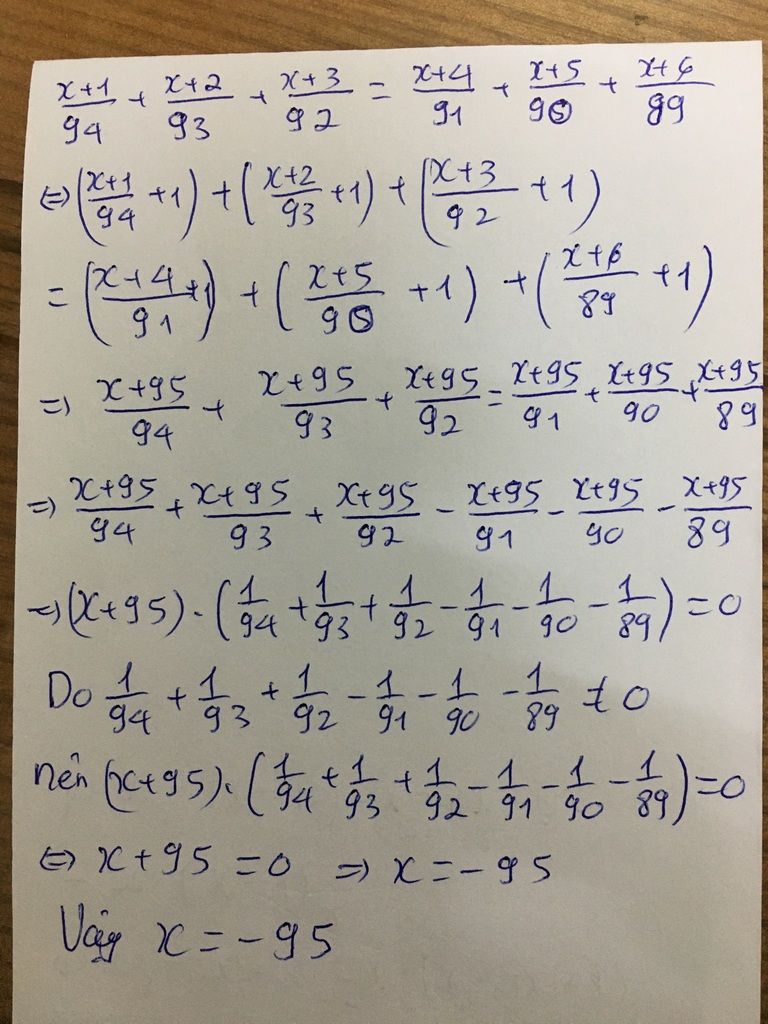 x+1/94 + x+2/93 + x+3/92 = x+4/91 + x+5/90 + x+6/89
⇔ (x+1/94 + 1) + (x+2/93 + 1) + (x+3/92 + 1)
= (x+4/91 + 1) + (x+5/90 + 1) + (x+6/89 + 1)
⇒ x+95/94 + x+95/93 + x+95/92 = x+95/91 + x+95/90 + x+95/89
⇒ x+95/94 + x+95/93 + x+95/92 - x+95/91 - x+95/90 - x+95/89
⇒ (x+95) . (1/94 + 1/93 + 1/92 - 1/91 - 1/90 - 1/89) = 0
Do 1/94 + 1/93 + 1/92 - 1/91 - 1/90 - 1/89 ≠ 0
nên (x+95). (1/94 + 1/93 + 1/92 - 1/91 - 1/90 - 1/89) = 0
⇔ x+95 = 0 ⇒ x = -95
Vậy x = -95